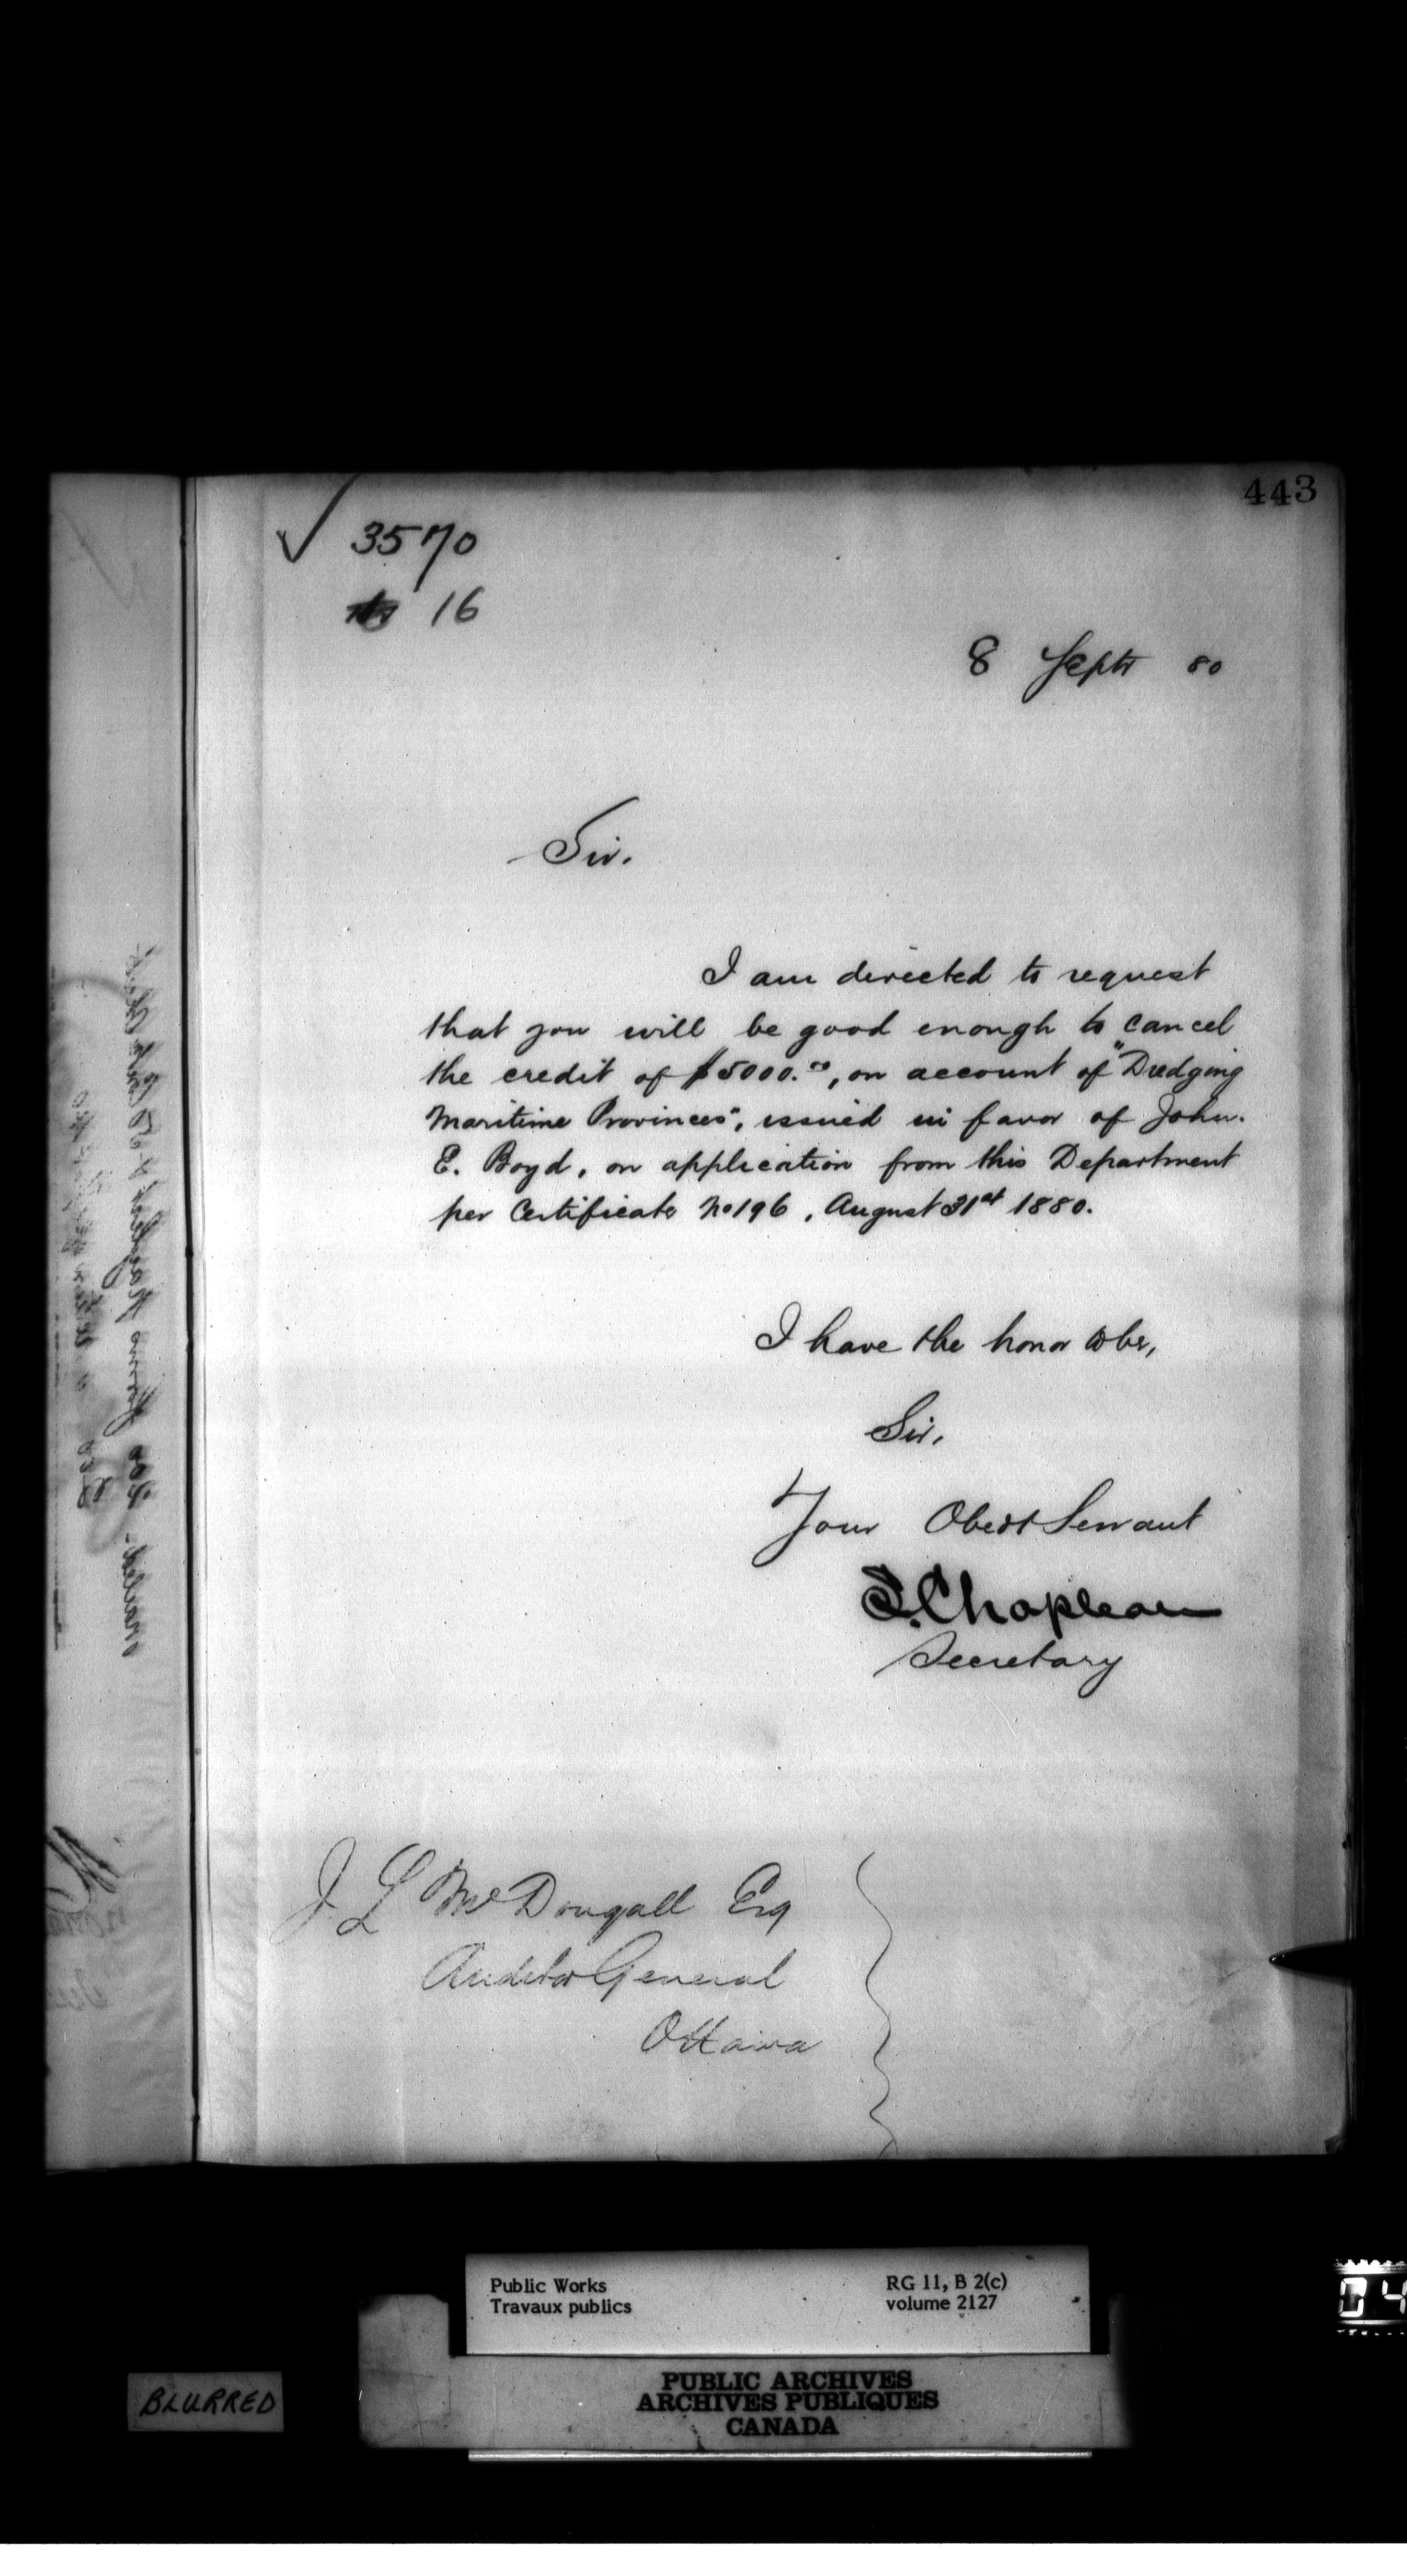 443
3570
16
8 Septr 80
Sir.
I am directed to request
that you will be good enough to cancel
the credit of $5000.00, on account of "Dredging
Maritime Provinces", issued in favor of John.
E. Boyd, on application from this Department
per Certificate No 196, August 31st 1880.
I have the honor to be,
Sir,
Your Obedt Servant
S. Chapleau
Secretary
J L McDougall Esq
Auditor General
Ottawa
Public Works
Travaux publics
RG 11, B 2(c)
volume 2127
PUBLIC ARCHIVES
ARCHIVES PUBLIQUES
CANADA
BLURRED
04